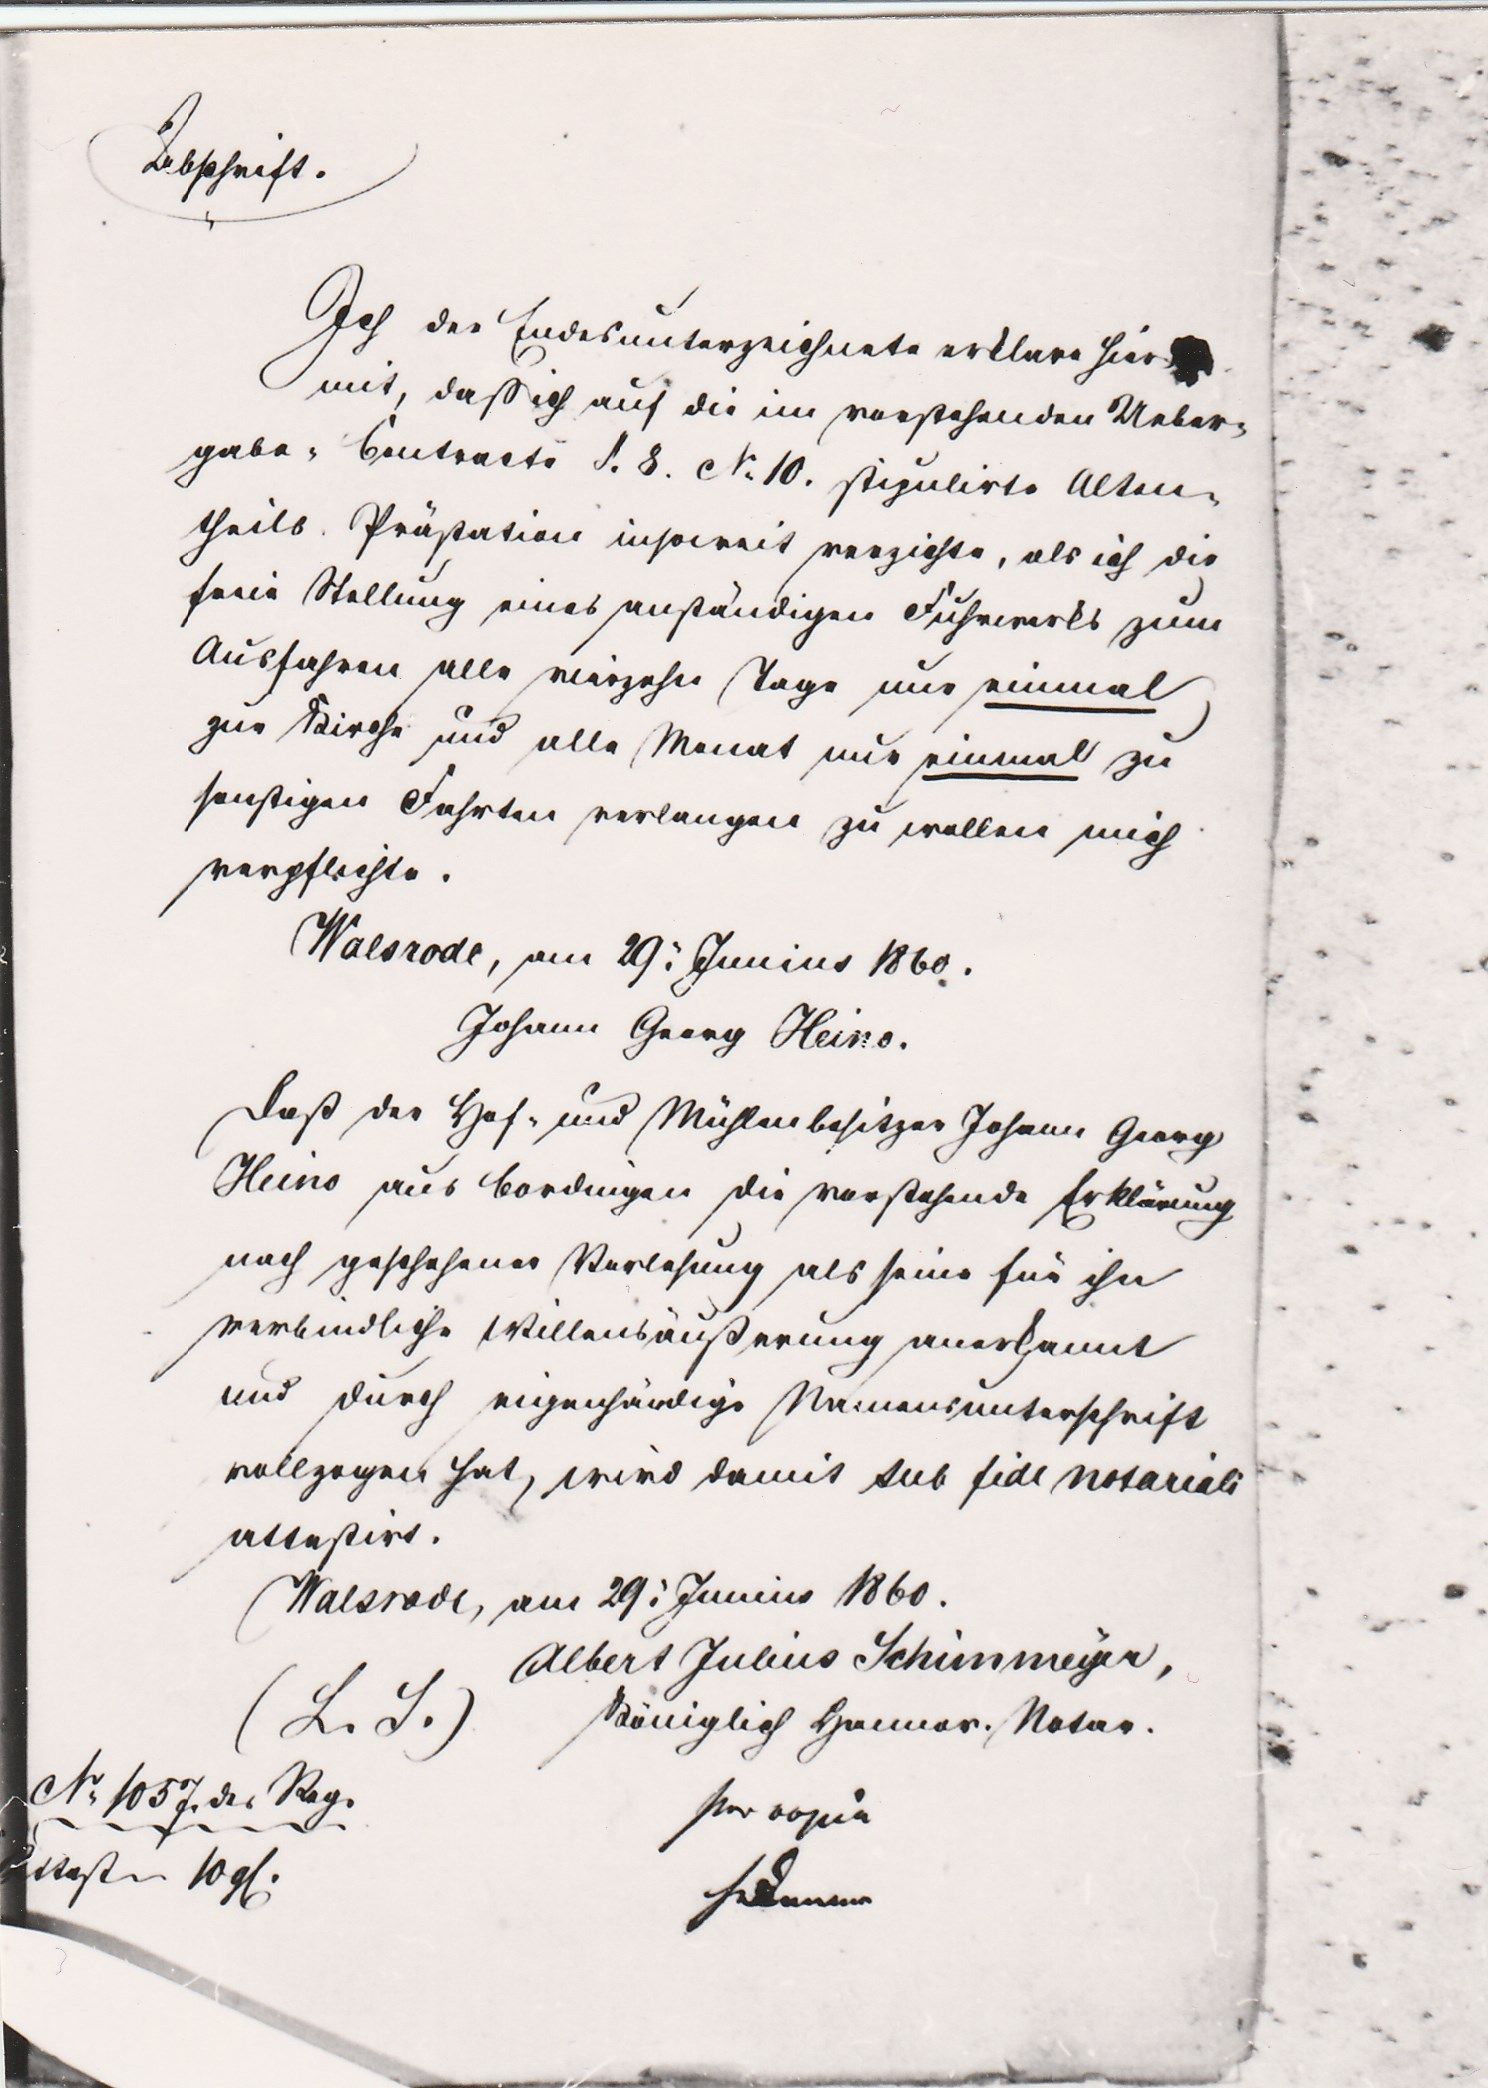 Abschrift.
Ich der Endesunterzeichnete erklare hier-
mit, daß ich auf die im vorstehenden Ueber-
gabe-Contracte §. 8. No. 10. stipulirte Alten-
theils Prästation insoweit verzichte, als ich die
freie Stellung eines anständigen Fuhrwerks zum
Ausfahren alle vierzehn Tage nur einmal
zur Kirche und alle Monat nur einmal zu
sonstigen Fahrten verlangen zu wollen mich
verpflichte.
Walsrode, am 29. Junius 1860.
Johann Georg Heino.
Daß der Hof- und Mühlenbesitzer Johann Georg
Heino aus Cordingen die vorstehende Erklärung
nach geschehener Verlesung als seine für ihn
verbindliche Willensäußerung anerkannt
und durch eigenhändige Namensunterschrift
vollzogen hat, wird damit sub fide notariali
attestirt.
Walsrode, am 29. Junius 1860.
Albert Julius Schimmeyer,
(L. S.) Königlich Hannov. Notar.
No. 1057. des Reg.
pro copia
Attest 10 gf.